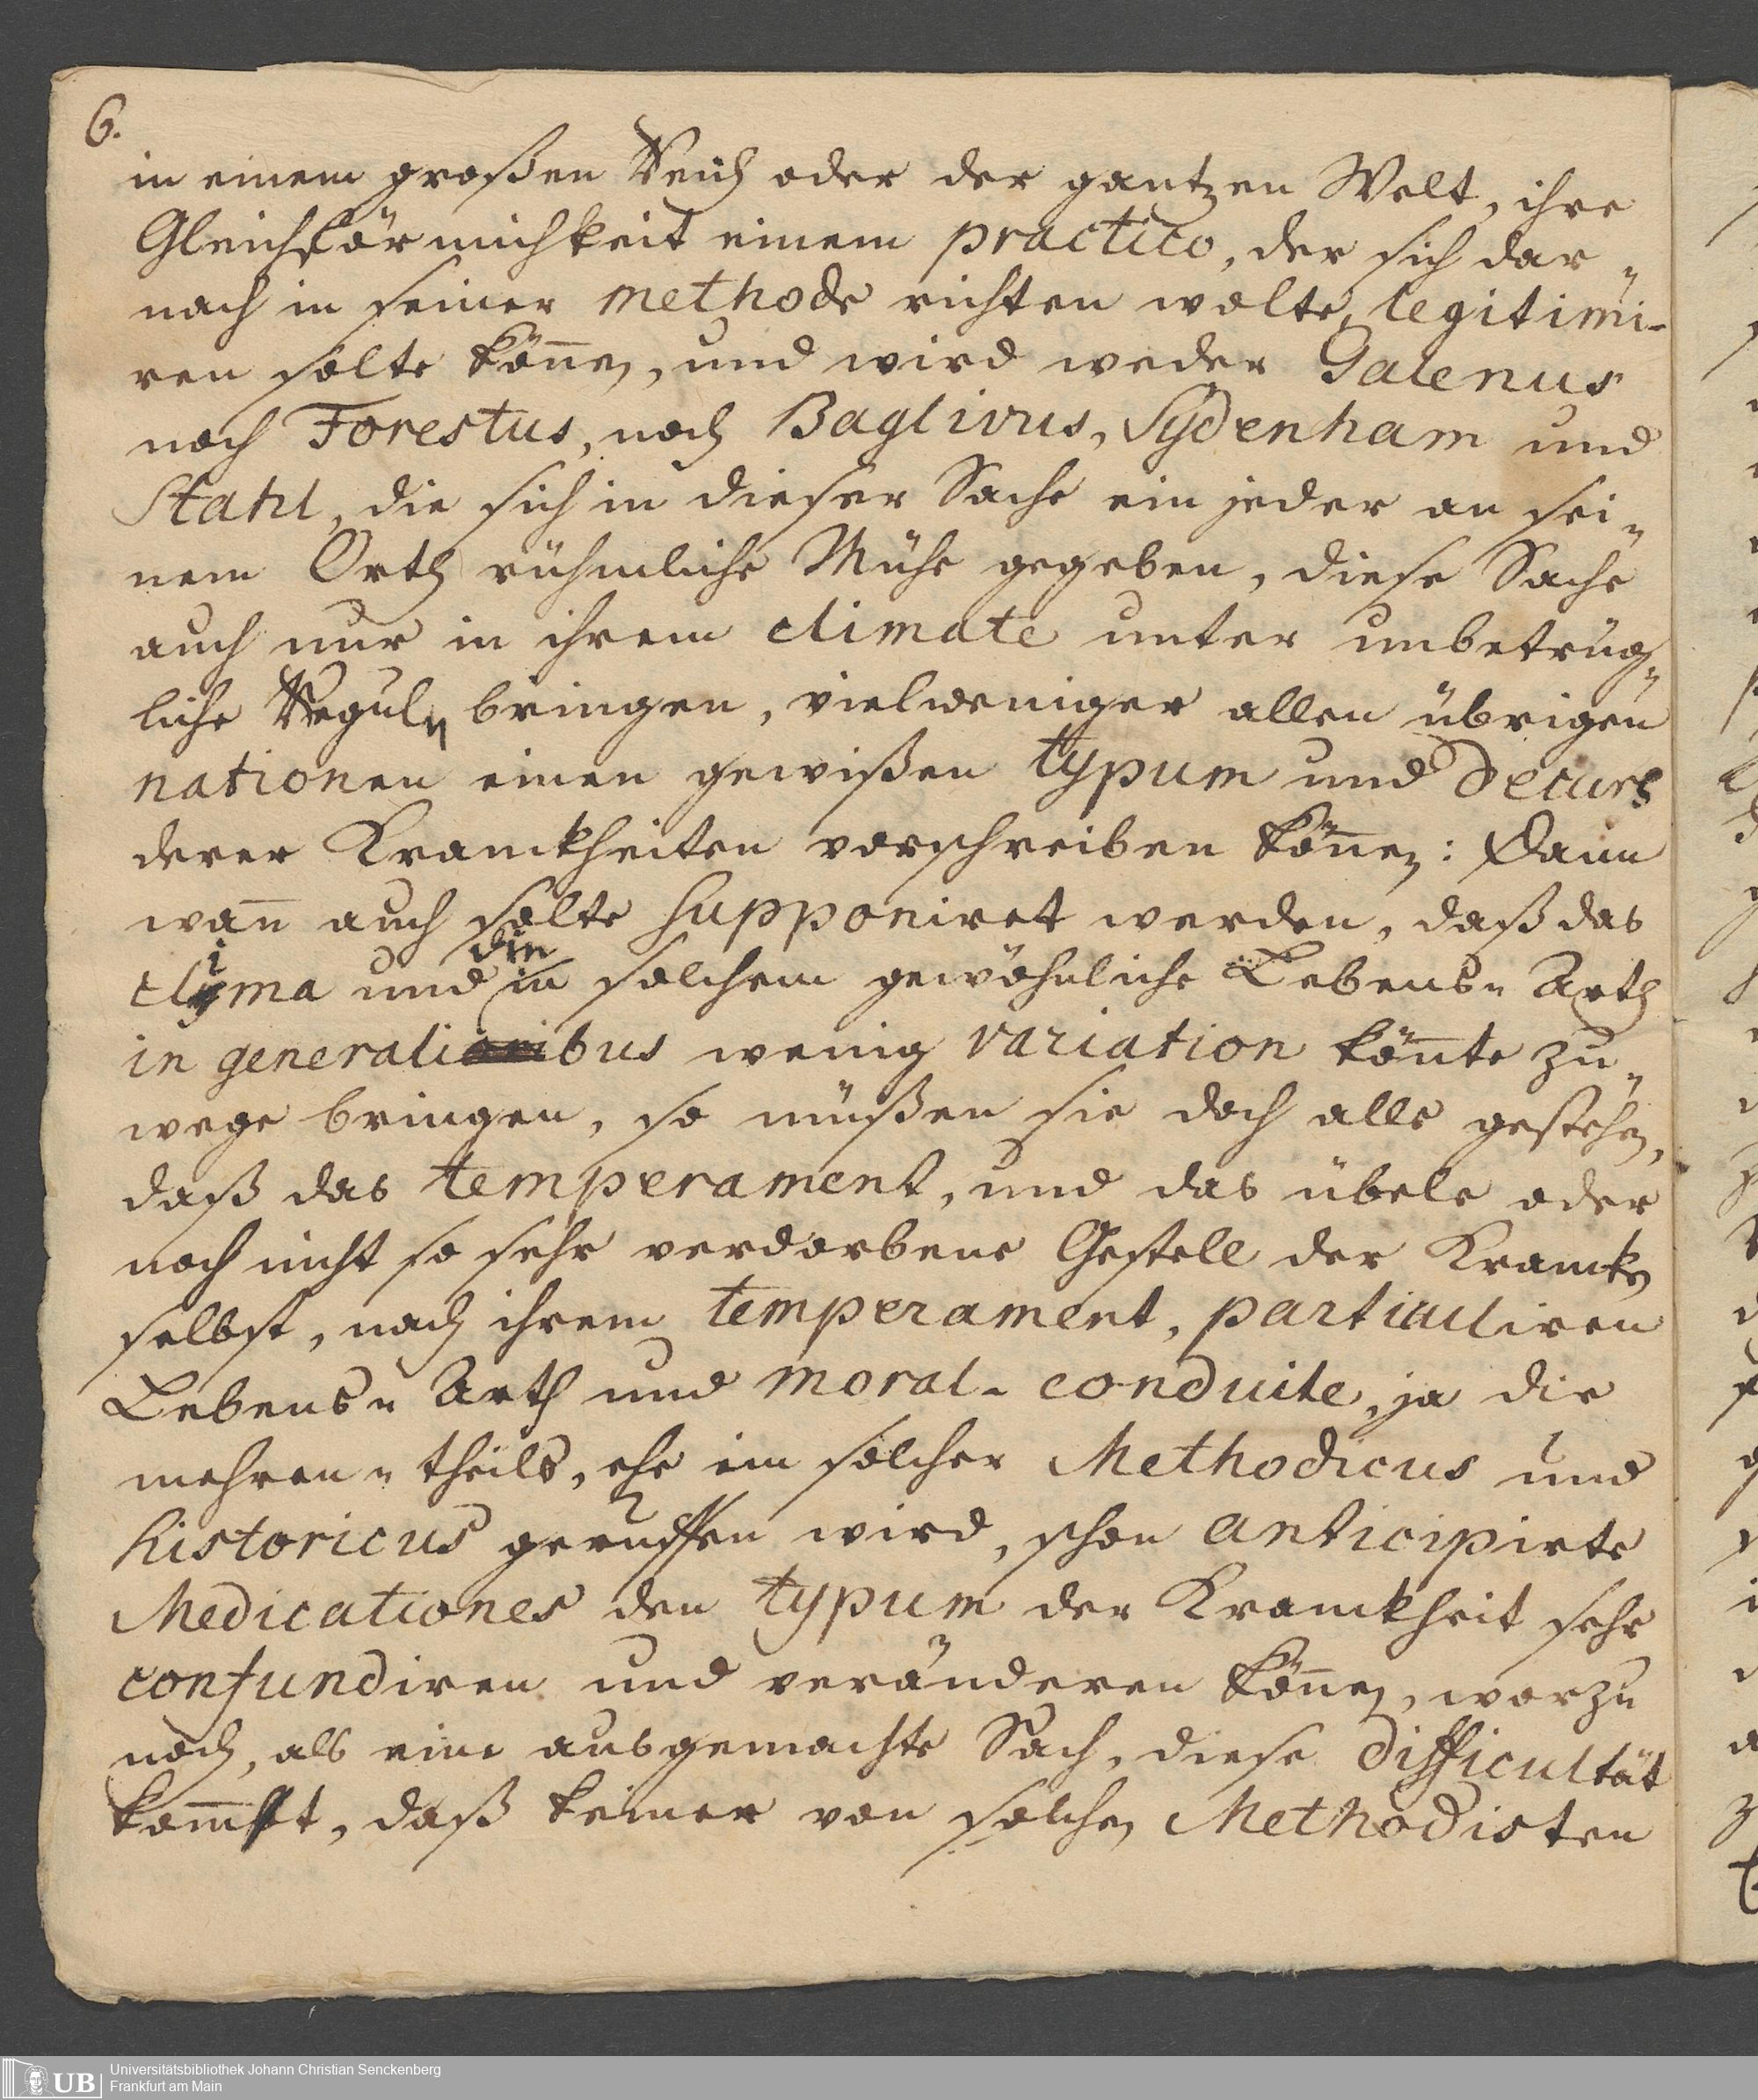 6.
in einem großen Reich oder der gantzen Welt, ihre
Gleichförmichkeit einem practico, der sich dar„
nach in seiner methode richten wolte, legitimi-
ren solte kön̄en, und wird weder Galenus
noch Forestus, noch Baglivus, Sydenham und
Stahl, die sich in dieser Sache ein jeder an sei„
nem Orth rühmliche Mühe gegeben, diese Sache
auch nur in ihrem climate unter unbetrüg„
liche Reguln bringen, vielweniger allen übrigen
nationen einen gewißen typum und decurs
derer Kranckheiten vorschreiben kön̄en: Dann
wan̄ auch solte supponiret werden, daß das
clima und die in solchem gewöhnliche Lebens„ Arth
in generalibus wenig variation kön̄te zu„
wege bringen, so müßen sie doch alle gestehen,
daß das temperament, und das übele oder
noch nicht so sehr verdorbene Gestell der Krancken
selbst, nach ihrem temperament, particuliren
Lebens„ Arth und moral-conduite, ja die
mehren„theils, ehe ein solcher Methodicus und
historicus geruffen wird, schon anticipirte
Medicationes den typum der Kranckheit sehr
confundiren und veränderen kön̄en, worzu
noch, als eine ausgemachte Sach, diese difficultät
kom̄t, daß keiner von solchen Methodisten
UB
Universitätsbibliothek Johann Christian Senckenberg
Frankfurt am Main